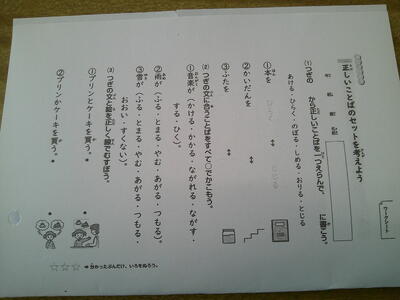 ワークシート
正しいことばのセットを考えよう
(1) つぎの から正しいことばを一つえらんで、 に書こう。
あける・ひらく・のぼる・しめる・おりる・とじる
①本を
②かいだんを
③ふたを
(2) つぎの文に合うことばをすべて○でかこもう。
①音楽が(かける・かかる・ながれる・ながす・
する・ひく)。
②雨が(ふる・とまる・やむ・あがる・つもる)。
③雪が(ふる・とまる・やむ・あがる・つもる・
おおい・すくない)。
(3) つぎの文と絵を正しく線でむすぼう。
①プリンとケーキを買う。
②プリンかケーキを買う。
☆☆☆ ➡分かったぶんだけ、いろをぬろう。